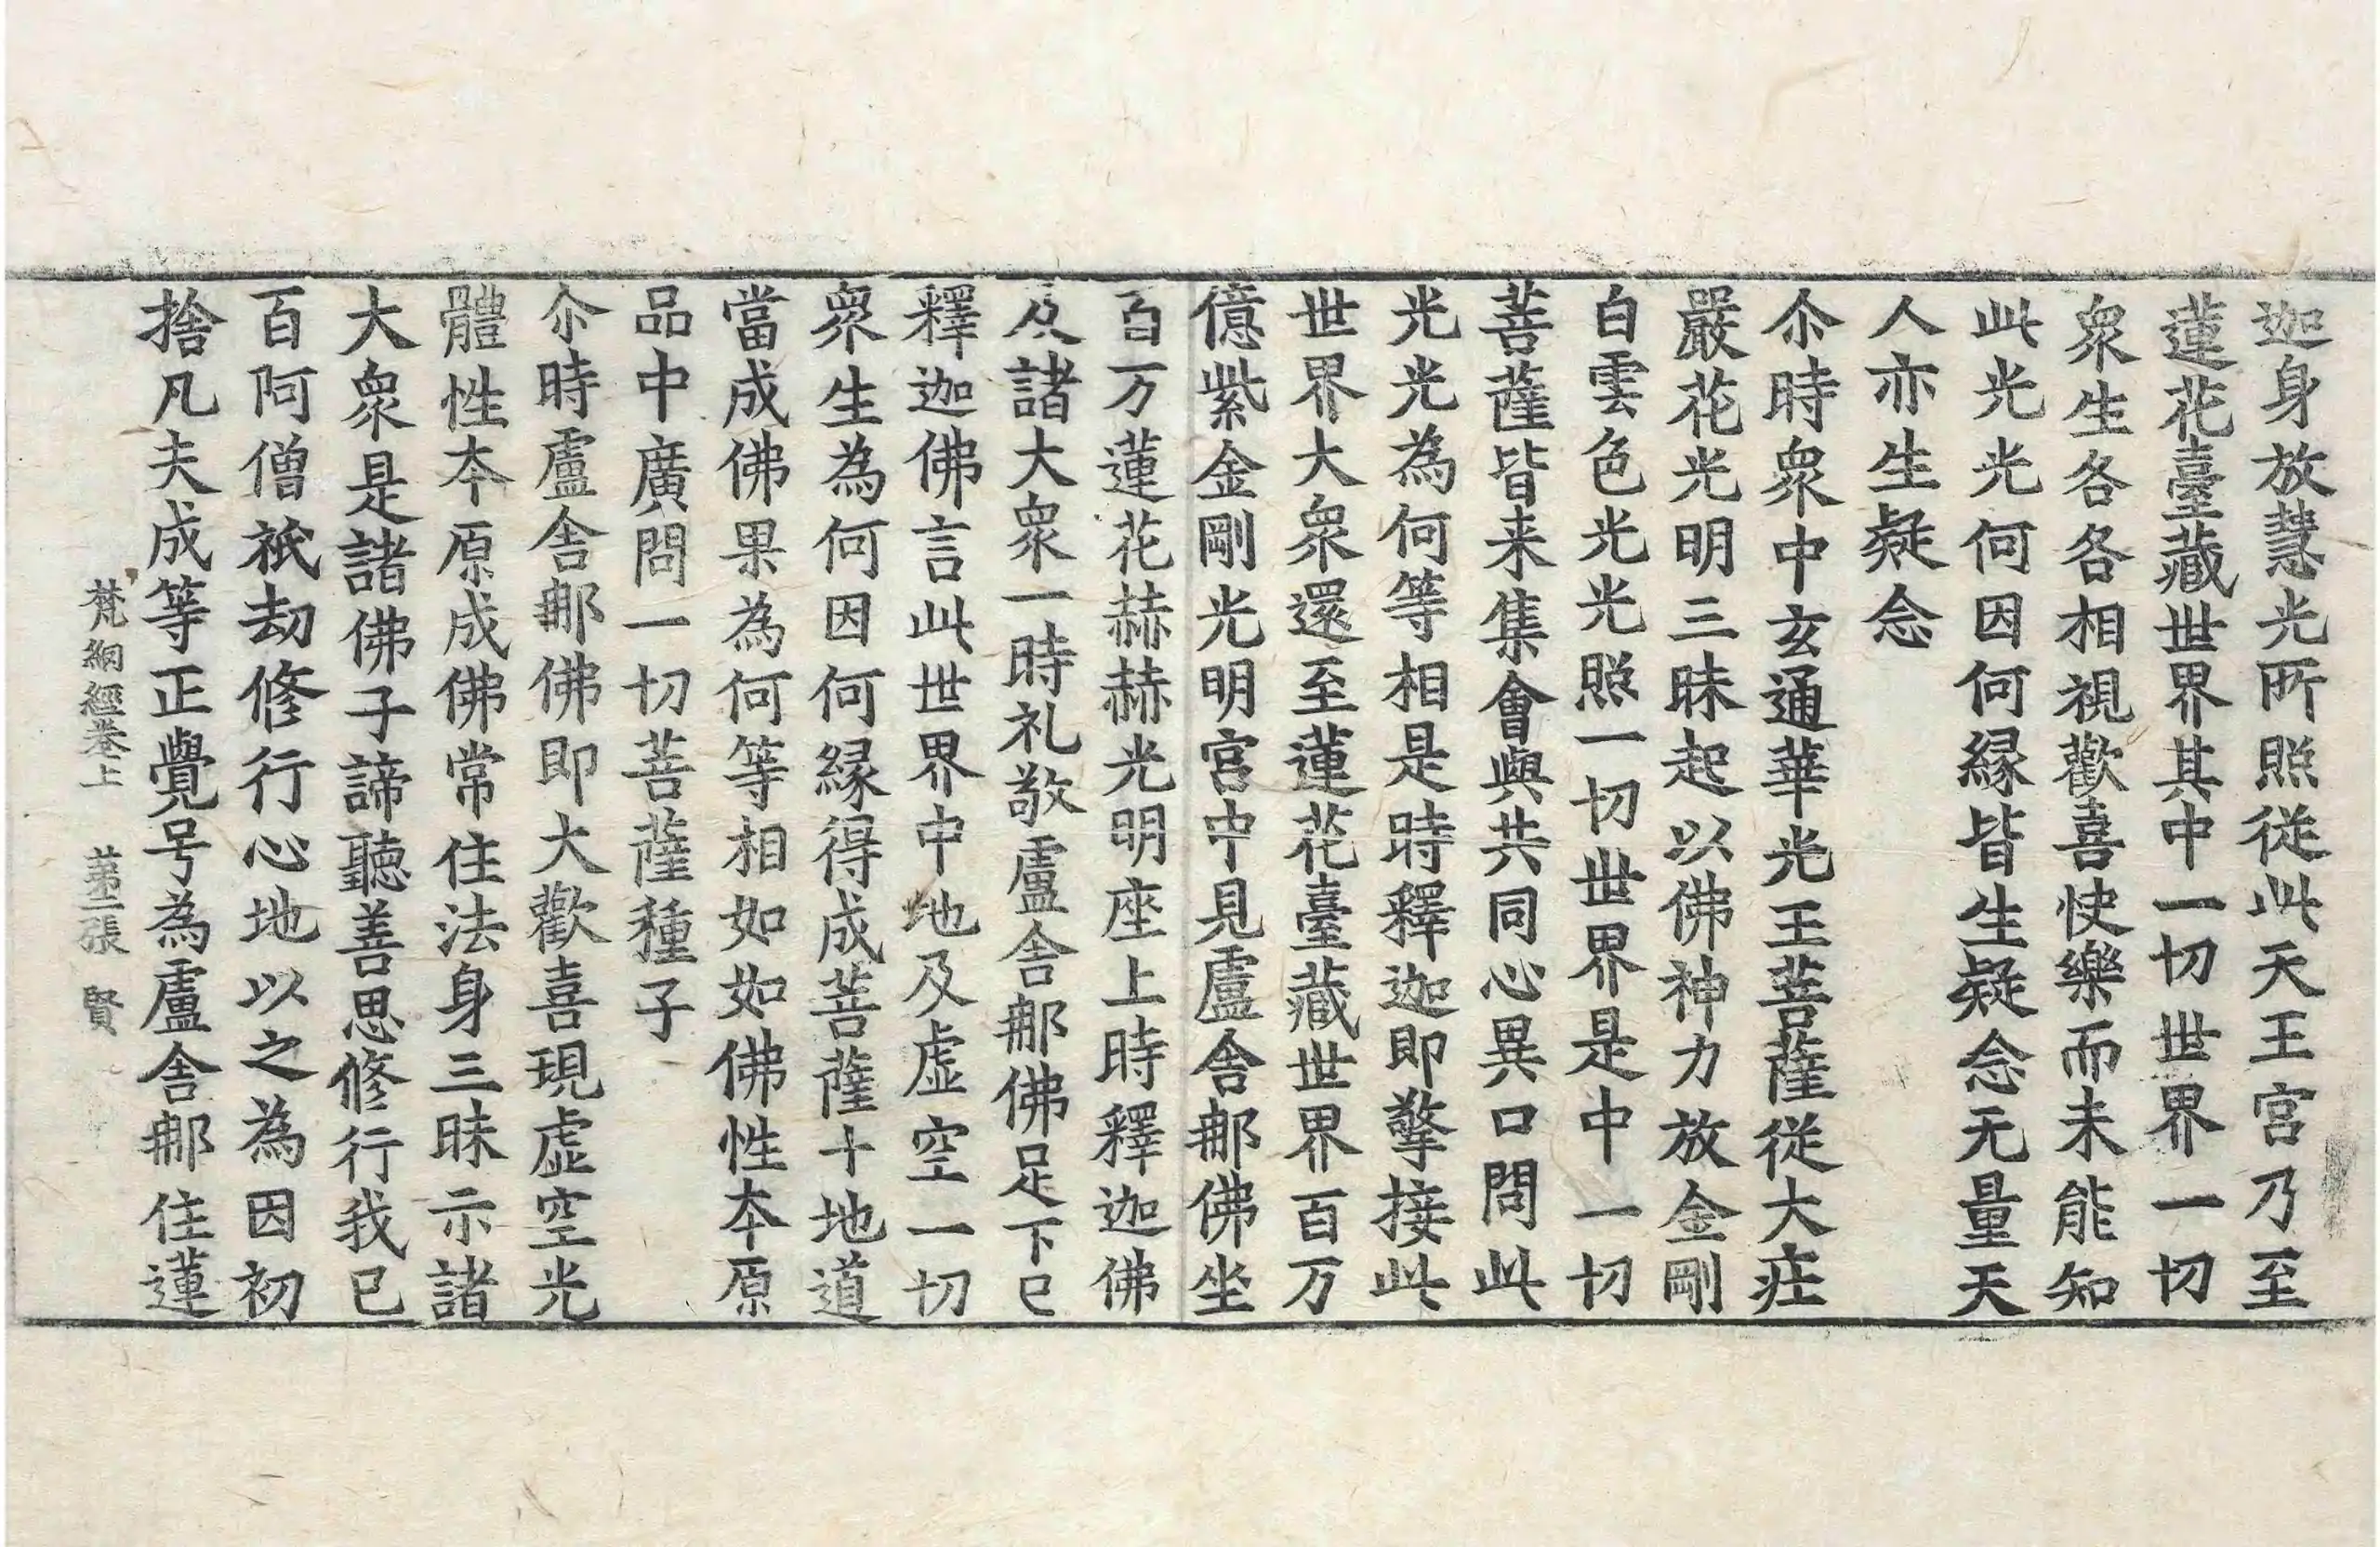 迦身放慧光所照従此天王宮乃至
蓮花臺藏世界其中一切世界一切
衆生各各相視歡喜快樂而未能知
此光光何因何縁皆生疑念无量天
人亦生疑念
尒時衆中玄通華光王菩薩従大莊
嚴花光明三昧起以佛神力放金剛
白雲色光光照一切世界是中一切
菩薩皆来集會與共同心異口問此
光光為何等相是時釋迦即擎接此
世界大衆還至蓮花臺藏世界百万
億紫金剛光明宮中見盧舍那佛坐
百万蓮花赫赫光明座上時釋迦佛
及諸大衆一時礼敬盧舍那佛足下已
釋迦佛言此世界中地及虚空一切
衆生為何因何縁得成菩薩十地道
當成佛果為何等相如如佛性本原
品中廣問一切菩薩種子
尒時盧舍那佛即大歡喜現虚空光
體性本原成佛常住法身三昧示諸
大衆是諸佛子諦聽善思修行我已
百阿僧祇劫修行心地以之為因初
捨凡夫成等正覺号為盧舍那住蓮
梵網經卷上 苐二張 賢